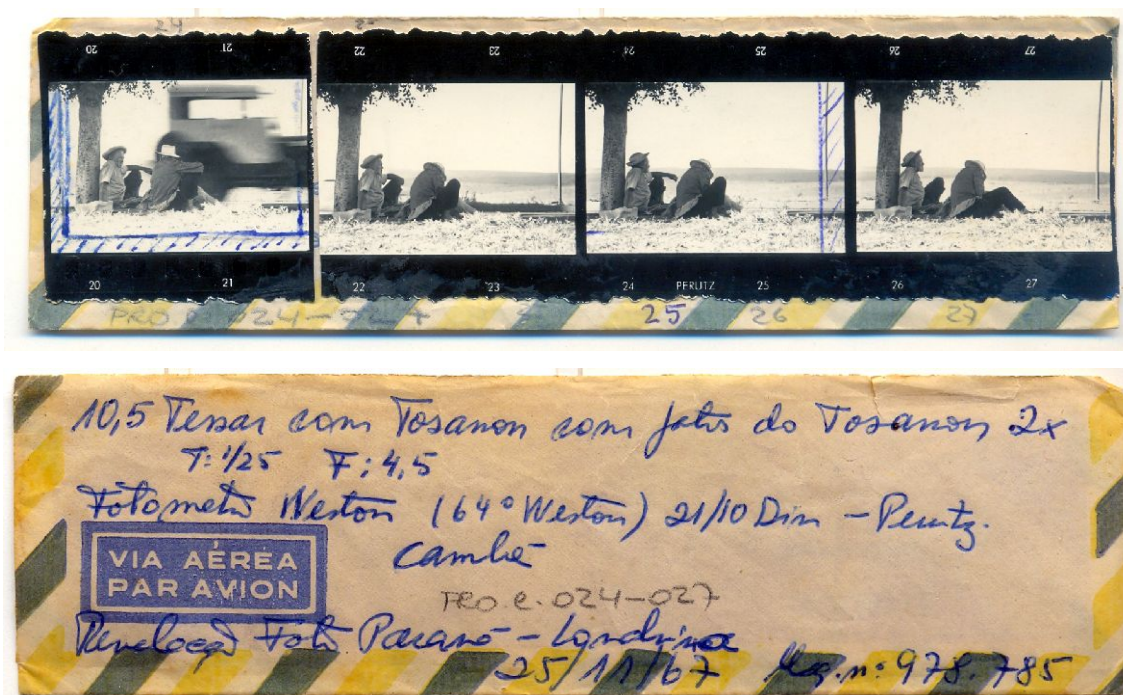 24
20 21 22 23 24 25 26 27
20 21 22 23 24 PERUTZ 25 26 27
PRO e. 024-027 25 26 27
10,5 Tessar com Tosanon com fator do Tosanon 2x
T: 1/25 F: 4,5
Fotometro Weston (64° Weston) 21/10 Din - Perutz.
Cambé
VIA AÉREA
PAR AVION
PRO e. 024-027
Revelação Foto Paraná - Londrina
25/11/67 Neg. nº 978.785